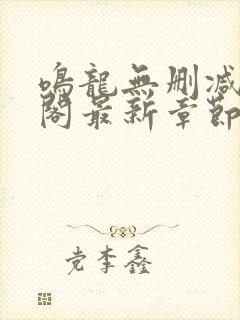 鳴龍無刪減
閣最新章節
党李鑫